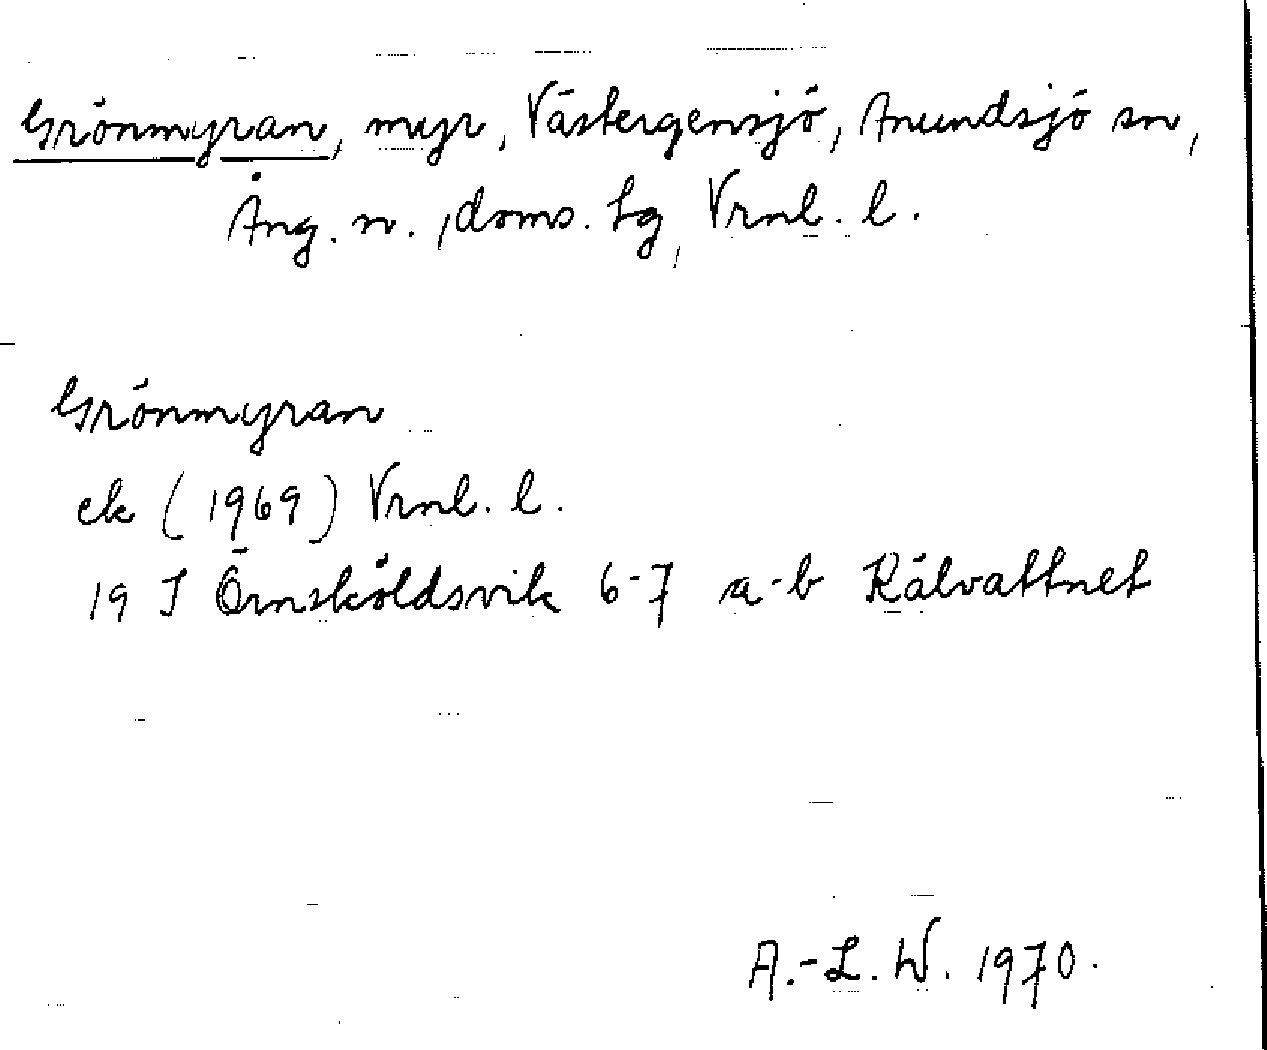 Grönmyran, myr, Västergensjö, Anundsjö sn,
Ång. n., doms. tg, Vrnl. l.
Grönmyran
ek (1969) Vrnl. l.
19 J Örnsköldsvik 6-7 a-b Kälvattnet
A.-L. W. 1970.